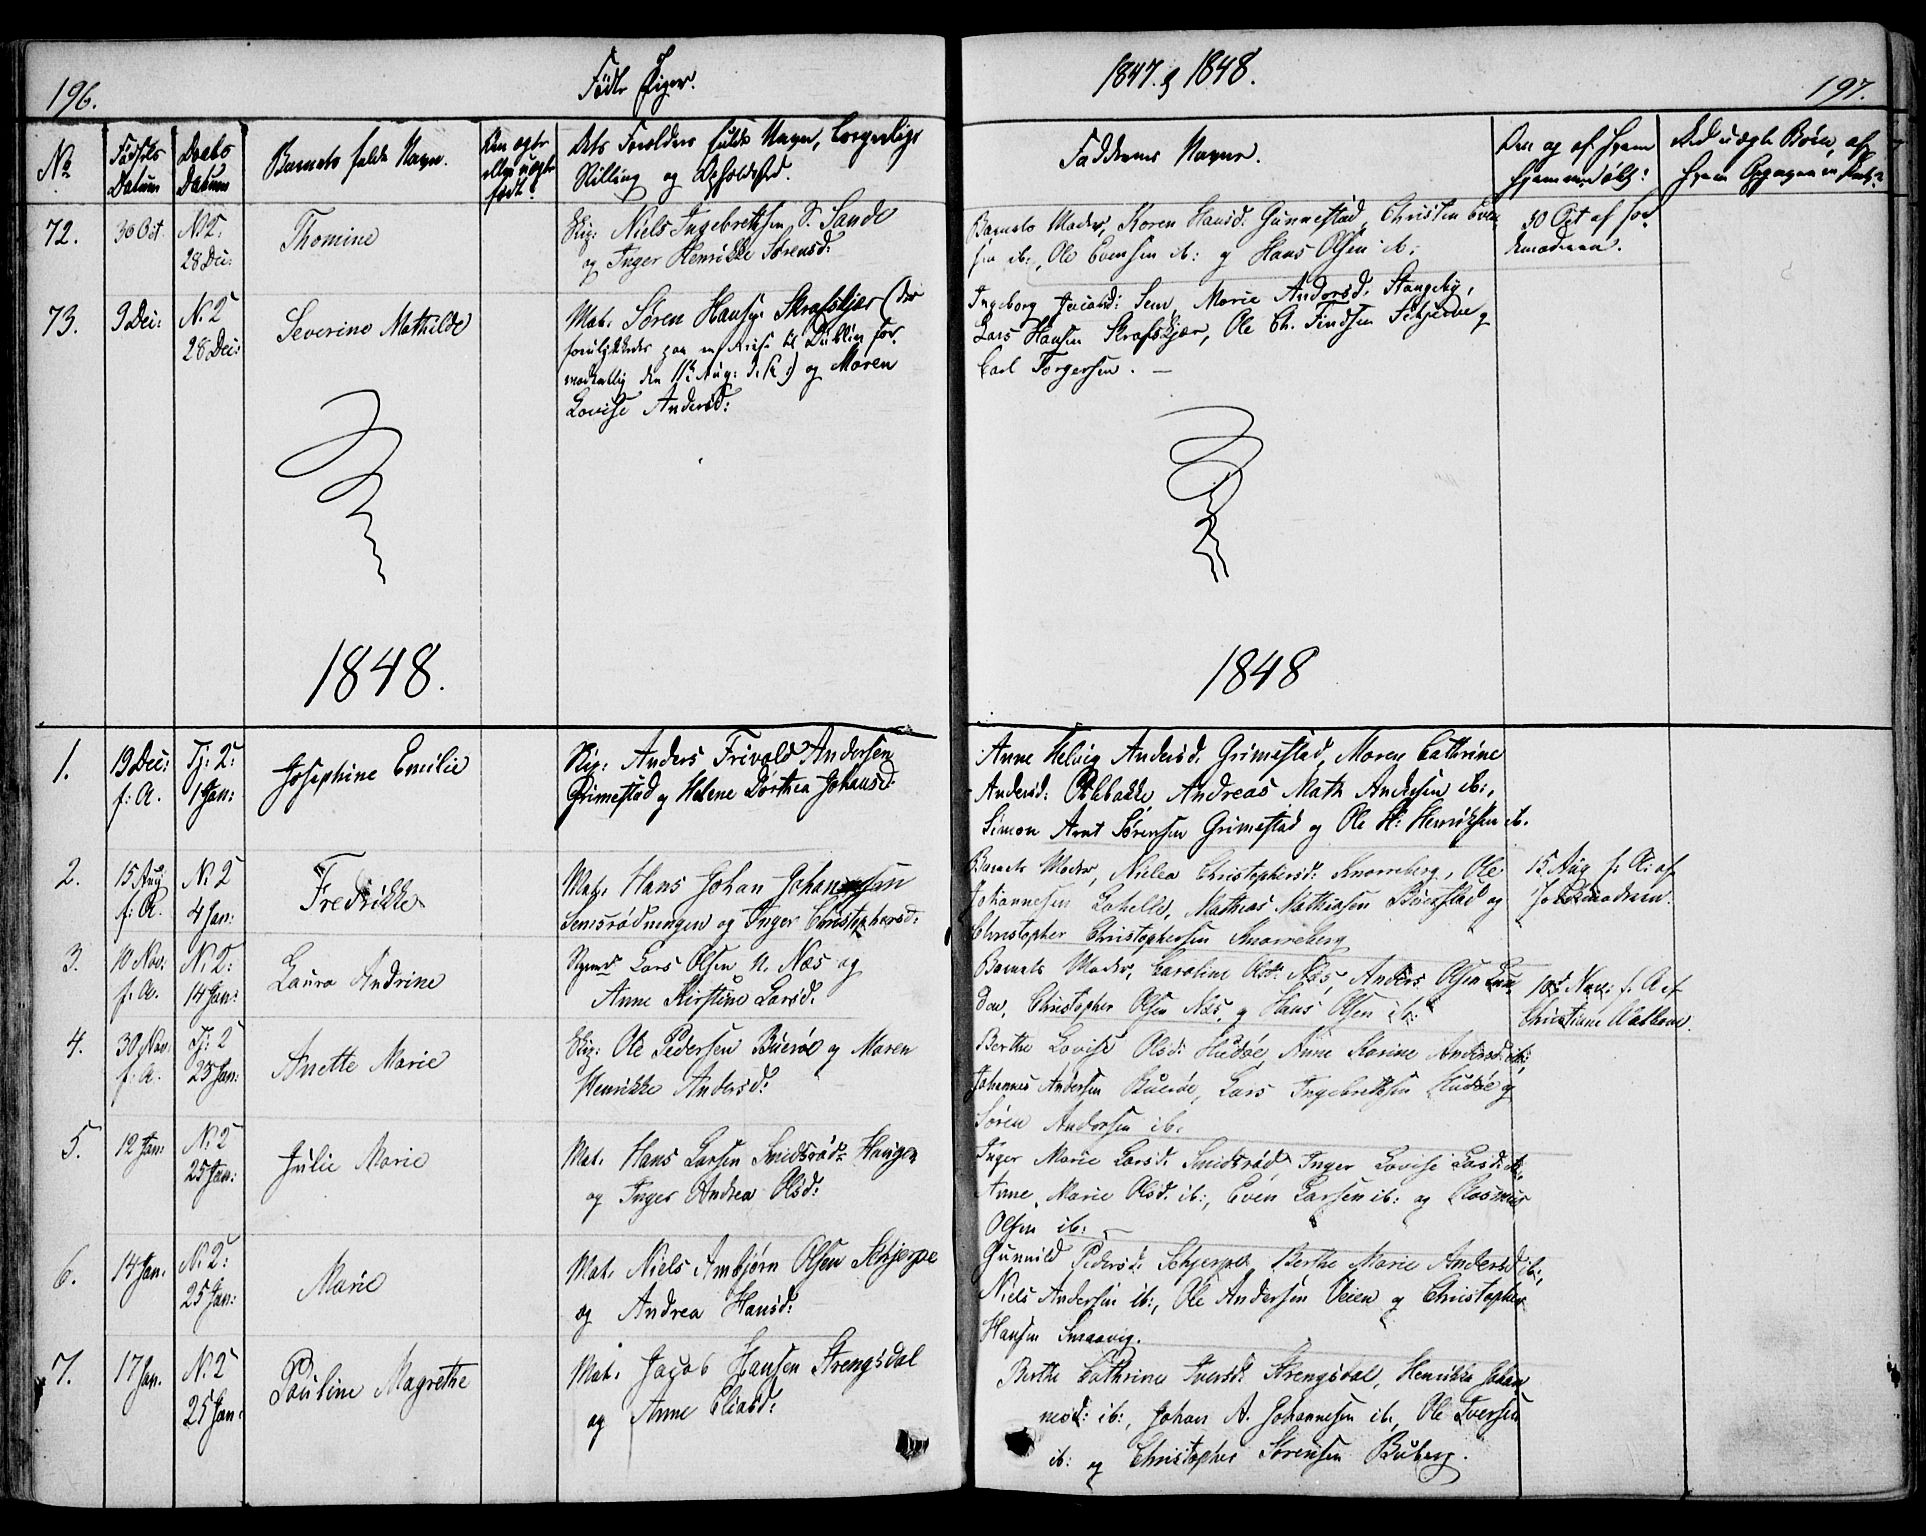 196.
Fødte Piger.
No
Fødsels Datum
Daabs Datum
Barnets fulde Navn.
Om ægte eller uægte født.
Dets Forældres fulde Navn, borgerlige Stilling og Opholdssted.
72.
30 Oct.
N. K:
28 Dec:
Thomine
Skip: Niels Ingebretsen S. Sande
og Inger Henrikke Sørensd:
73.
9 Dec:
N. K
28 Dec:
Severine Mathilde
Mat. Søren Hansen Skrafskjær (der
forulykkedes paa en Reise til Dublin for
den 11te Aug: d. A:) og Maren
Lovise Andersd:
1848.
1.
19 Dec:
f. A.
Tj: K:
1 Jan:
Josephine Emilie
Skip: Anders Frivold Andersen
Grimestad og Helene Dorthea Johansd:
2.
15 Aug
f. A.
N. K
4 Jan:
Fredrikke
Mat. Hans Johan Johannessen
Semsrødningen og Inger Christophersd:
3.
10 Nov:
f. A.
N. K:
14 Jan:
Laura Andrine
Lars Olsen N. Næs og
Anne Kirstine Larsd:
4.
30 Nov.
f. A.
Tj: K
23 Jan:
Anette Marie
Skip: Ole Pedersen Buerøe og Maren
Henrikke Andersd:
5.
12 Jan:
N. K
25 Jan:
Julie Marie
Mat. Hans Larsen Smidsrød Haugen
og Inger Andrea Olsd:
6.
14 Jan.
N. K:
25 Jan:
Marie
Mat. Niels Ambjørn Olsen Schjerpe
og Andrea Hansd:
7.
17 Jan.
N. K
25 Jan:
Pauline Magrethe
Mat. Jacob Hansen Strengsdal
og Anne Eliasd:
1847. og 1848.
197.
Faddernes Navne.
Naar og af hvem hjemmedøbt:
Ved uægte Børn, af hvem
Barnets Moder, Karen Hansd. Gunnestad, Christen Even-
sen ib:, Ole Evensen ib: og Hans Olsen ib:
30 Oct af Jor-
demoderen.
Ingeborg Jacobsd: Sem, Marie Andersd. Stangeby,
Lars Hansen Skrafskjær, Ole Ch. Findsen Schjerve og
Carl Torgersen. —
1848
Anne Helvig Andersd. Grimestad, Maren Cathrine
Andersd: Ollebakke, Andreas Math Andersen ib:,
Simon Arnt Sørensen Grimestad og Ole H: Henriksen ib.
Barnets Moder, Nielea Christophersd: Snorreberg, Ole
Johannesen Lahelle, Mathias Mathiasen Bøerstad og
Christopher Christophersen Snorreberg
15 Aug f. A: af
Jordemoderen.
Barnets Moder, Caroline Olsd: Næs, Anders Olsen Lun-
den, Christopher Olsen Næs, og Hans Olsen ib:
10de Nov: f. A af
Christiane Aalborn.
Berthe Lovise Olsd: Hudøe, Anne Karine Andersd: ib:,
Johannes Andersen Buerøe, Lars Ingebretsen Hudøe og
Søren Andersen ib.
Inger Marie Larsd. Smidsrød, Inger Lovise Larsd: ib:,
Anne Marie Olsd. ib:, Even Larsen ib: og Rasmus
Olsen ib: —
Gunnild Pedersd: Schjerpe, Berthe Marie Andersd: ib:,
Niels Andersen ib:, Ole Andersen Veien og Christopher
Hansen Smaavig.
Berthe Cathrine Iversd: Strengsdal, Henrikke Johan-
nesd: ib:, Johan A. Johannesen ib:, Ole Iversen
ib: og Christopher Sørensen Buberg.